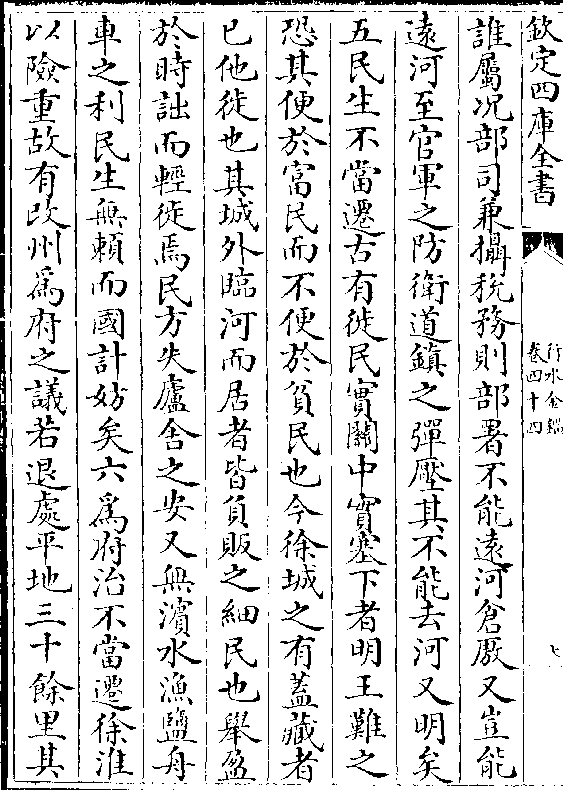 欽定四庫全書
行水金鑑
卷四十四
七
誰屬况部司兼攝稅務則部署不能遠河倉厫又豈能
遠河至官軍之防衛道鎮之彈壓其不能去河又明矣
五民生不當遷古有徙民實關中實塞下者明王難之
恐其便於富民而不便於貧民也今徐城之有蓋藏者
已他徙也其城外臨河而居者皆負販之細民也舉盈
於時詘而輕徙焉民方失廬舍之安又無濱水漁鹽舟
車之利民生無賴而國計妨矣六為府治不當遷徐淮
以險重故有改州為府之議若退處平地三十餘里其